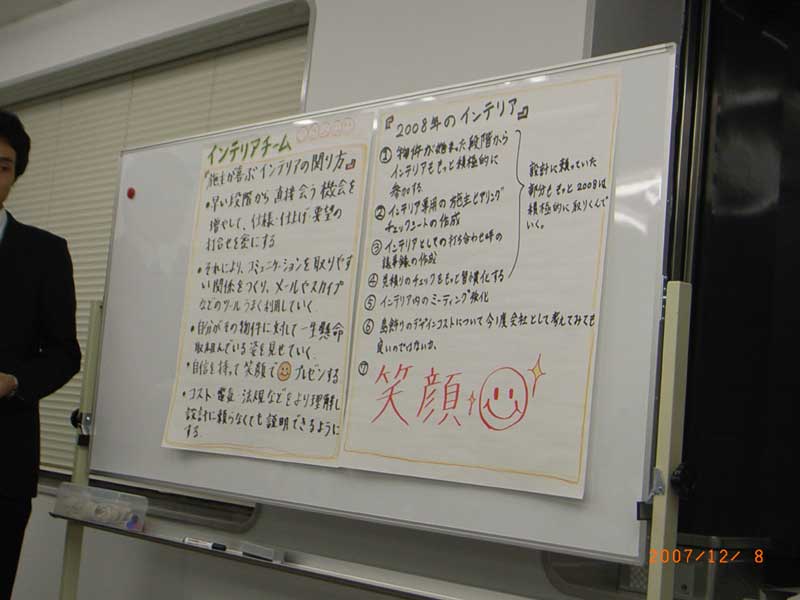 インテリアチーム
『施主が喜ぶインテリアの関り方』
・早い段階から直接会う機会を
増やして、仕様・仕上げ・要望の
打合せを密にする
・それにより、コミュニケーションを取りやす
い関係をつくり、メールやスカイプ
などのツールうまく利用していく。
・自分がその物件に対して一生懸命
取組んでいる姿を見せていく。
・自信を持って笑顔でプレゼンする
・コスト・電気・法規などをより理解し
設計に頼らなくても説明できるように
する.
『2008年のインテリア』
①物件が始まった段階から
インテリアももっと積極的に
参加する.
②インテリア専用の施主ヒアリング
チェックシートの作成
③インテリアとしての打ち合わせ時の
議事録の作成
④見積りのチェックをもっと習慣化する
⑤インテリア内のミーティング強化
⑥のデザインコストについて今1度会社として考えてみても
良いのではないか。
⑦
笑顔
設計に頼っていた
部分ももっと2008は
積極的に取りくんで
いく。
2007/12/ 8